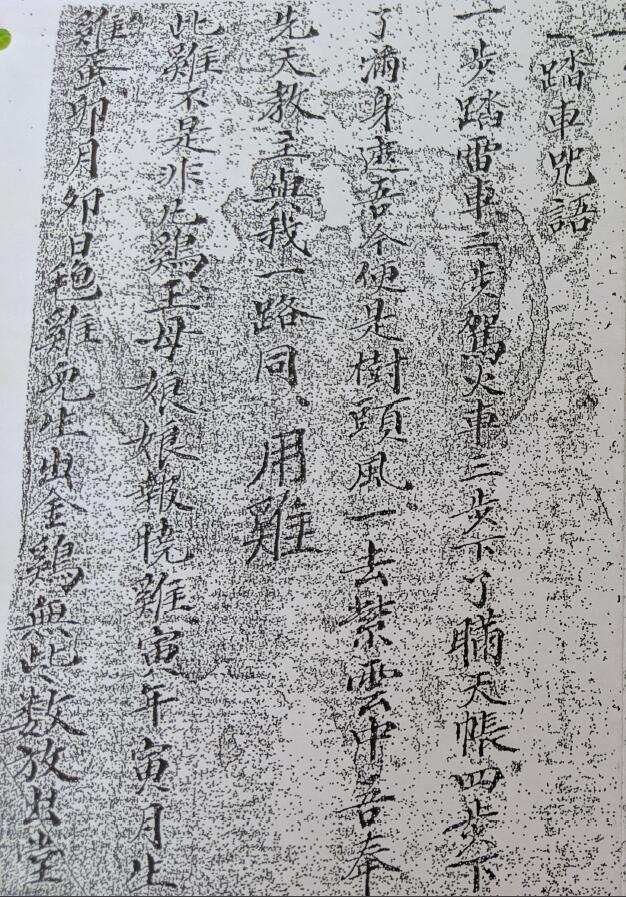 一踏車咒語
一步踏雷車二步駕火車三步下了瞞天帳四步下
了滿身遮吾今便是樹頭風一去紫雲中吾奉
先天教主與我一路同、用雞
此雞不是非凡鷄王母娘娘報曉雞寅年寅月生
雞蛋卯月卯日抱雞兒生出金鷄無比数放出堂